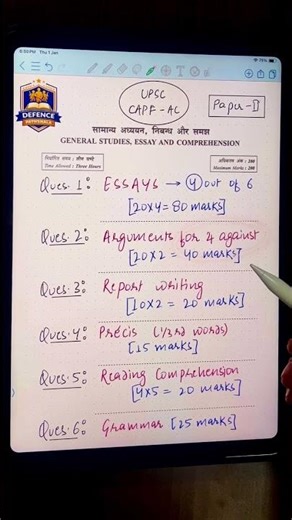 6:39 PM Thu 1 Jan
75%
DEFENCE
PATHSHALA
UPSC
CAPF-AC
Paper-II
सामान्य अध्ययन, निबन्ध और समझ
GENERAL STUDIES, ESSAY AND COMPREHENSION
निर्धारित समय : तीन घण्टे
Time Allowed : Three Hours
अधिकतम अंक : 200
Maximum Marks : 200
Ques. 1: ESSAYS → 4 out of 6
[20x4 = 80 marks]
Ques. 2: Arguments for & against
[20x2 = 40 marks]
Ques. 3: Report writing
[10x2 = 20 marks]
Ques. 4: Précis (1/3rd words)
[15 marks]
Ques. 5: Reading Comprehension
[4x5 = 20 marks]
Ques. 6: Grammar [25 marks]